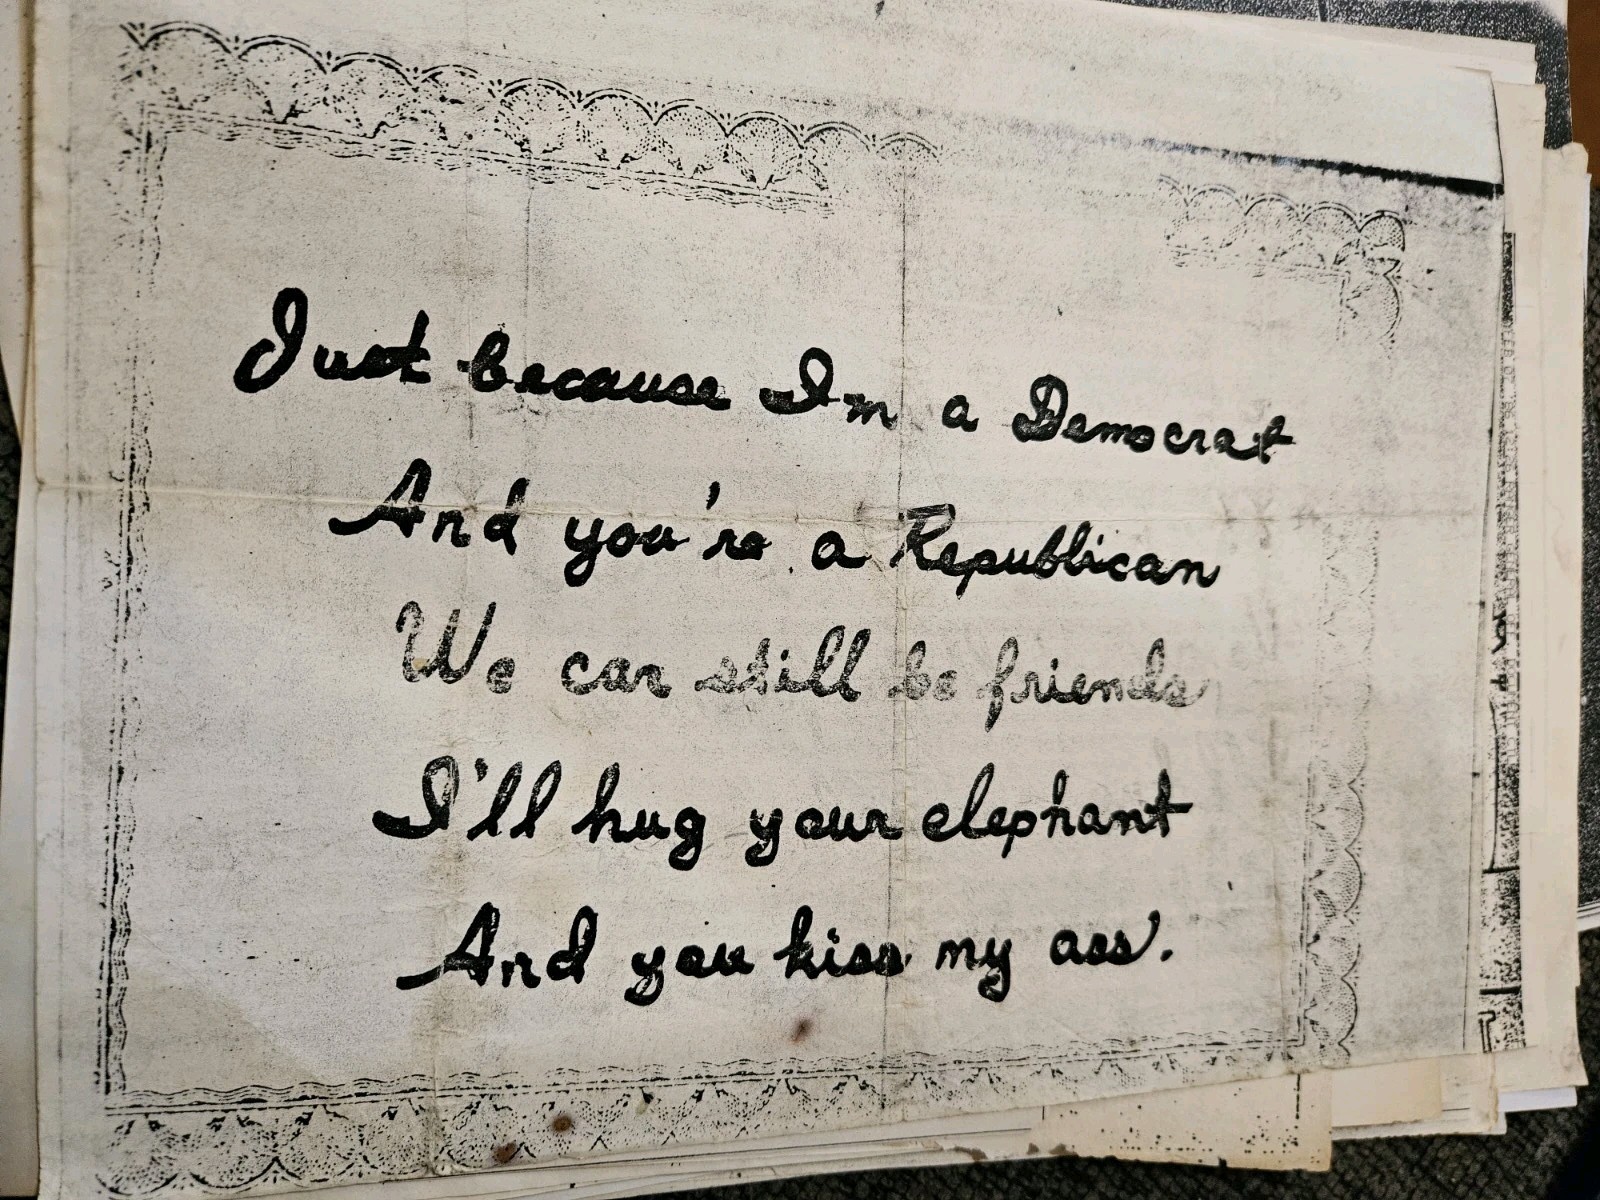 Just because Im a Democrat
And you're a Republican
We can still be friends
I'll hug your elephant
And you kiss my ass.